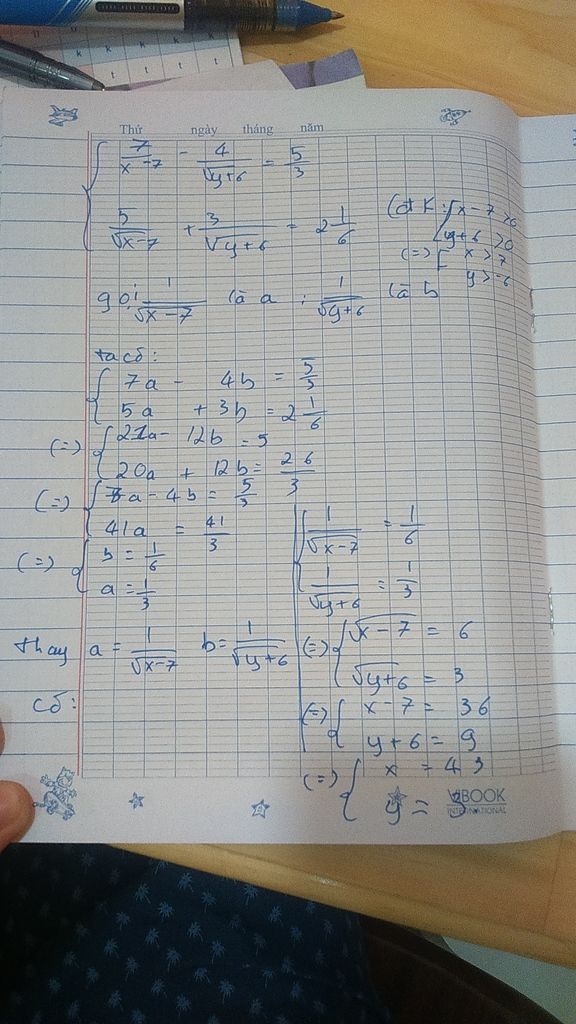 Thứ ngày tháng năm
{ 7/x-7 - 4/√y+6 = 5/3
5/√x-7 + 3/√y+6 = 2 1/6
(đt K: { x - 7 > 0
y+6 > 0
(=) [ x > 7
y > -6
gọi 1/√x-7 là a ; 1/√y+6 là b
ta có:
{ 7a - 4b = 5/3
5a + 3b = 2 1/6
(=) { 21a - 12b = 5
20a + 12b = 26/3
(=) { 7a - 4b = 5/3
41a = 41/3
(=) { b = 1/6
a = 1/3
thay a = 1/√x-7 b = 1/√y+6
có:
{ 1/√x-7 = 1/6
1/√y+6 = 1/3
(=) { √x-7 = 6
√y+6 = 3
(=) { x-7 = 36
y+6 = 9
(=) { x = 43
y = 3
VIBOOK
INTERNATIONAL